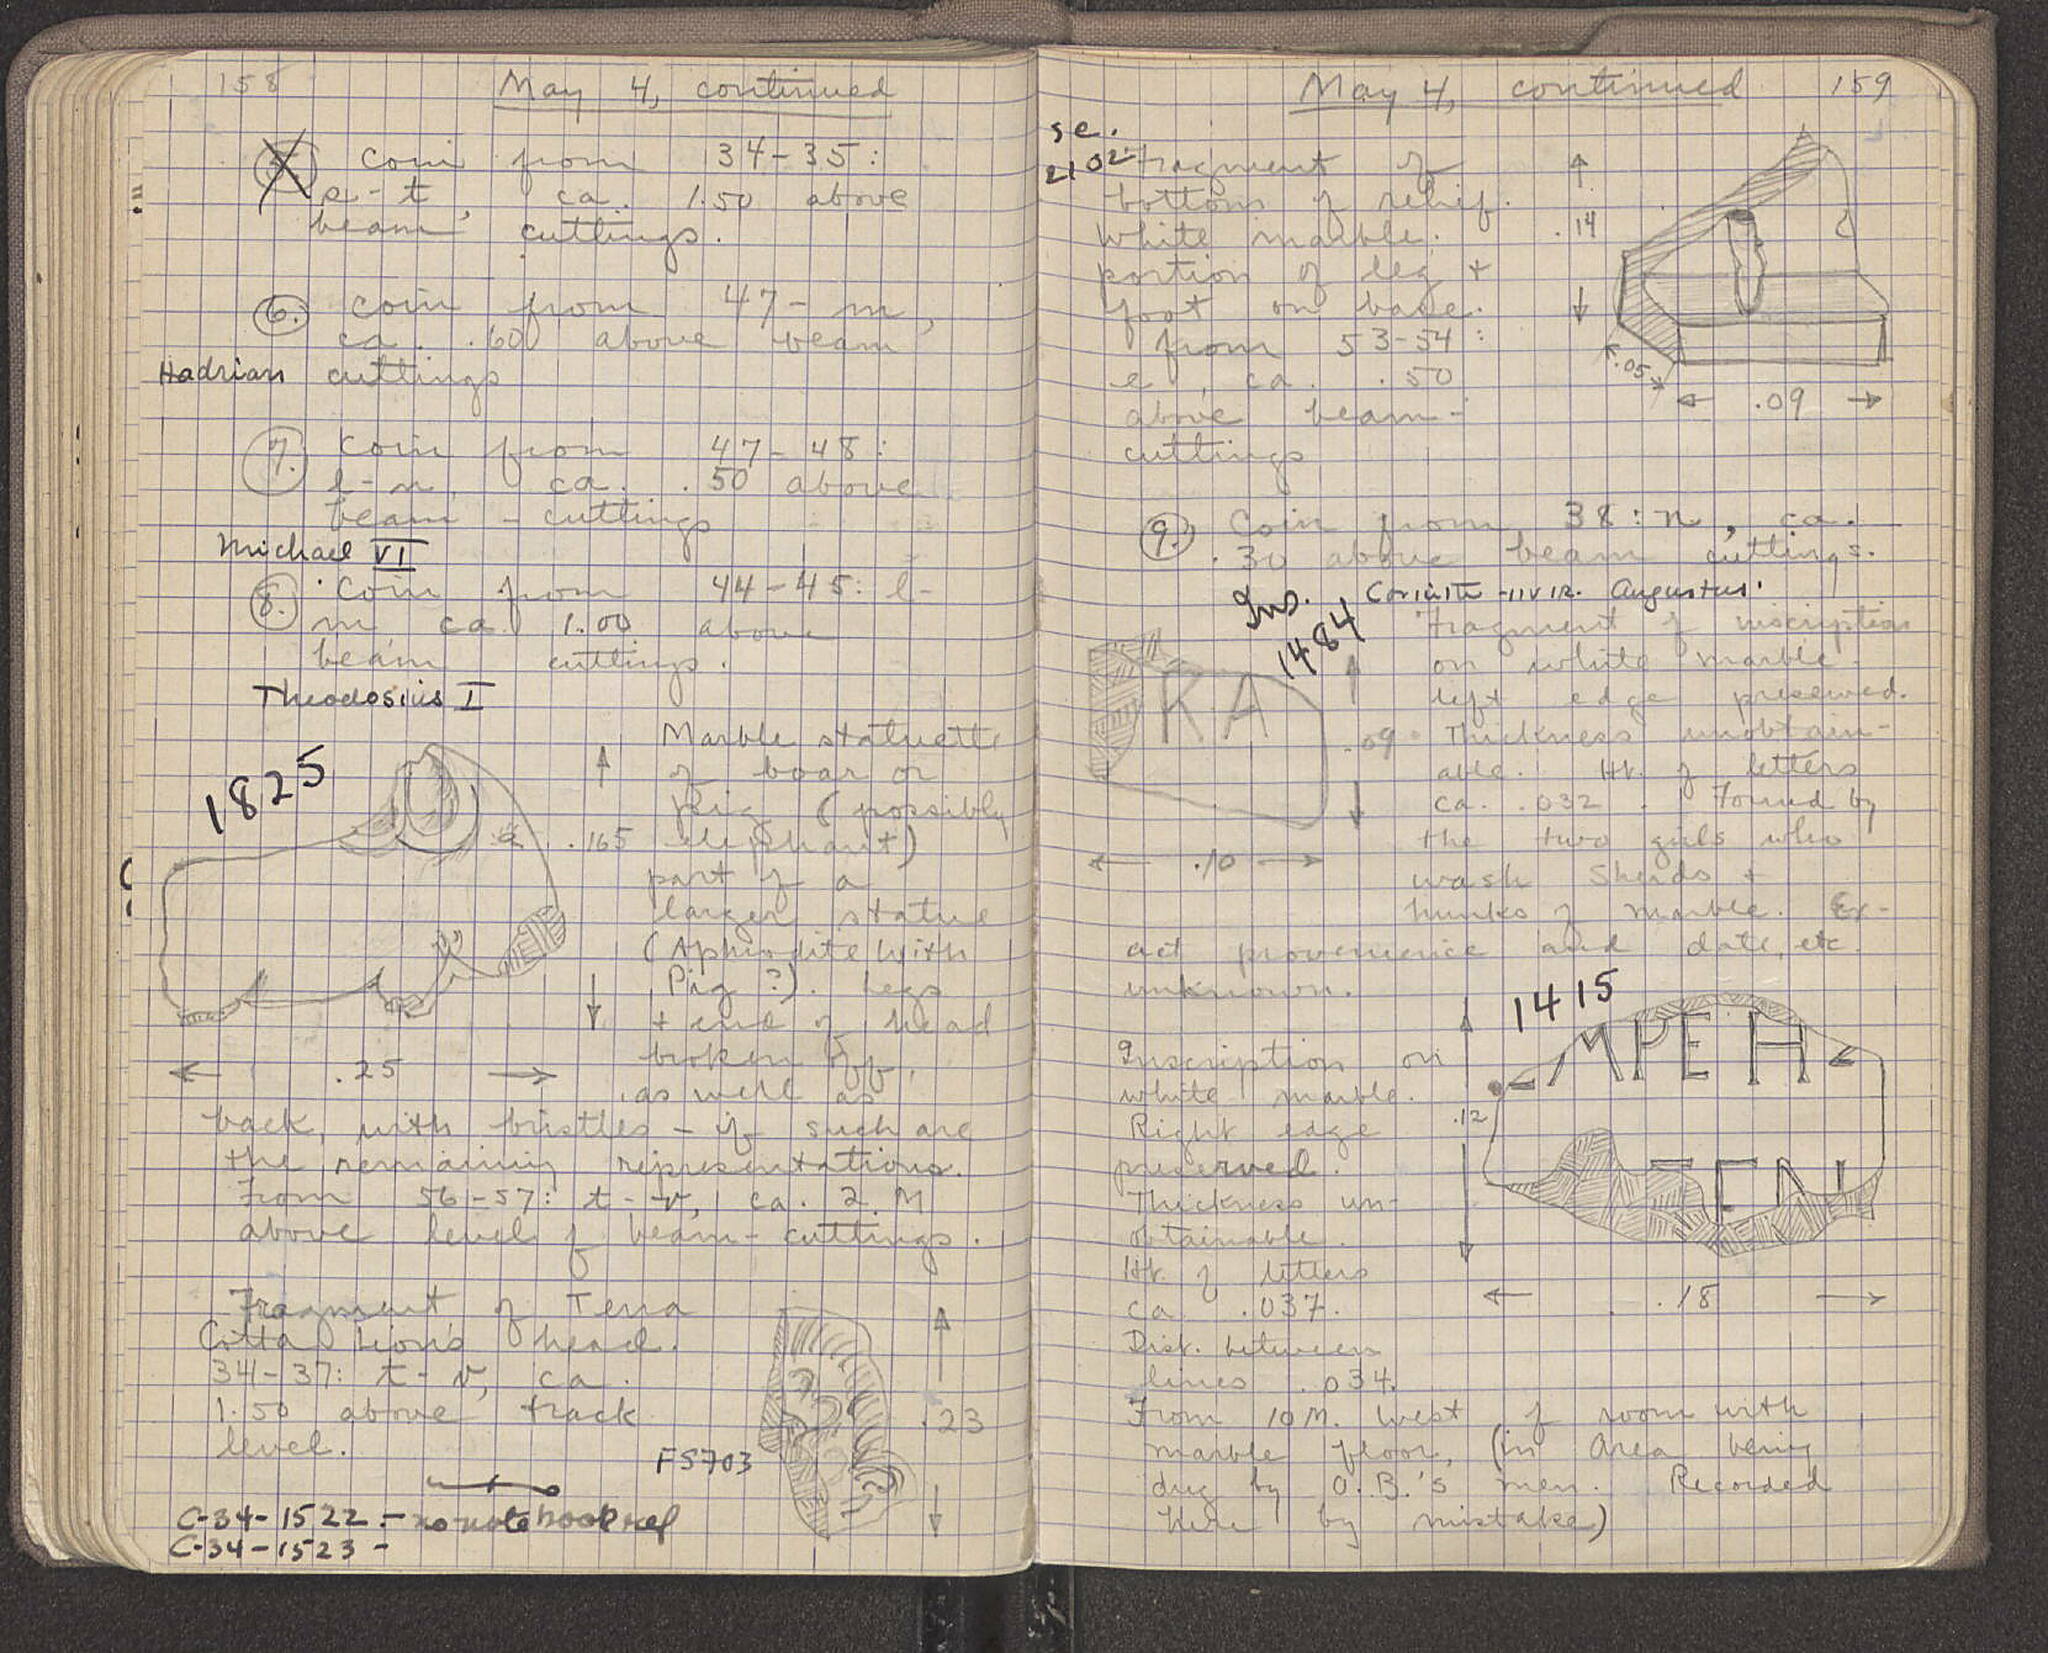 158
May 4, continued
5. Coin from 34-35:
s-t, ca. 1.50 above
beam cuttings.
6. Coin from 47-m,
ca. .60 above beam
Hadrian cuttings
7. Coin from 47-48:
l-n, ca. .50 above
beam-cuttings
Michael VI
8. Coin from 44-45: l-
m ca. 1.00 above
beam cuttings.
Theodosius I
1825
Marble statuette
of boar or
pig (possibly
.165 elephant)
part of a
larger statue
(Aphrodite with
Pig?). Legs
+ end of head
broken off,
.25
as well as
back, with bristles - if such are
the remaining representations.
From 56-57: t-v, ca. 2 M
above level of beam-cuttings.
Fragment of Terra
Cotta Lion's head.
34-37: t-v, ca.
1.50 above track
level.
.23
FS703
C-34-1522 - no notebook ref
C-34-1523 -
May 4, continued 159
se.
2102
Fragment of
bottom of relief.
White marble.
.14
portion of leg +
foot on base.
From 53-54:
e, ca. .50
.05
above beam-
.09
cuttings
9. Coin from 38:n, ca.
.30 above beam cuttings.
Corinth - IIVIR. Augustus.
Ins.
1484
KA
.09
.10
Fragment of inscription
on white marble.
left edge preserved.
Thickness unobtain-
able. Ht. of letters
ca. .032. Found by
the two girls who
wash sherds +
hunks of marble. Ex-
act provenience and date, etc.
unknown.
1415
Inscription on
white marble.
Right edge
preserved.
Thickness un-
obtainable.
Ht. of letters
ca. .037.
Dist. between
lines .034.
.12
.18
From 10 M. West of room with
marble floor, (in area being
dug by O.B.'s men. Recorded
here by mistake)